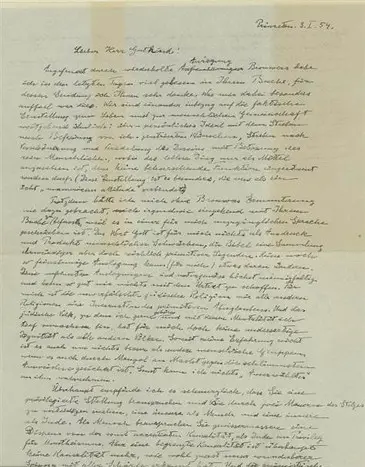 Princeton. 3. I. 54.
Lieber Herr Gutkind!
Angefeuert durch wiederholte Anregung Brouwers habe
ich in den letzten Tagen viel gelesen in Ihrem Buche, für
dessen Sendung ich Ihnen sehr danke. Was mir dabei besonders
auffiel war dies. Wir sind einander inbezug auf die faktische
Einstellung zum Leben und zur menschlichen Gemeinschaft
weitgehend ähnlich: persönliches Ideal mit dem Streben
nach Befreiung von ich-zentrierten Wünschen, Streben nach
Verschönerung und Veredelung des Daseins mit Betonung des
rein Menschlichen, wobei das leblose Ding nur als Mittel
anzusehen ist, dem keine beherrschende Funktion eingeräumt
werden darf. (Diese Einstellung ist es besonders, die uns als ein
echt "unamerican attitude" verbindet)
Trotzdem hätte ich mich ohne Brouwers Ermunterung
nie dazu gebracht, mich irgendwie eingehend mit Ihrem
Buche zu befassen, weil es in einer für mich unzugänglichen Sprache
geschrieben ist. Das Wort Gott ist für mich nichts als Ausdruck
und Produkt menschlicher Schwächen, die Bibel eine Sammlung
ehrwürdiger aber doch reichlich primitiver Legenden. Keine noch
so feinsinnige Auslegung kann (für mich) etwas daran ändern.
Diese verfeinerten Auslegungen sind naturgemäss höchst mannigfaltig
und haben so gut wie nichts mit dem Urtext zu schaffen. Für
mich ist die unverfälschte jüdische Religion wie alle anderen
Religionen eine Incarnation des primitiven Aberglaubens. Und das
jüdische Volk, zu dem ich gerne gehöre und mit dessen Mentalität ich
tief verwachsen bin, hat für mich doch keine andersartige
Dignität als alle anderen Völker. Soweit meine Erfahrung reicht
ist es auch um nichts besser als andere menschliche Gruppen
wenn es auch durch Mangel an Macht gegen die schlimmsten
Auswüchse gesichert ist. Sonst kann ich nichts "Auserwähltes"
an ihm wahrnehmen.
Überhaupt empfinde ich es schmerzlich, dass Sie eine
privilegierte Stellung beanspruchen und sie durch zwei Mauern des Stolzes
zu verteidigen suchen, eine äussere als Mensch und eine innere
als Jude. Als Mensch beanspruchen Sie gewissermassen einen
Dispens von der sonst acceptierten Kausalität, als Jude ein Privileg
für Monotheismus. Aber eine begrenzte Kausalität ist überhaupt
keine Kausalität mehr, wie wohl zuerst unser wunderbarer
Spinoza mit aller Schärfe erkannt hat. Und die